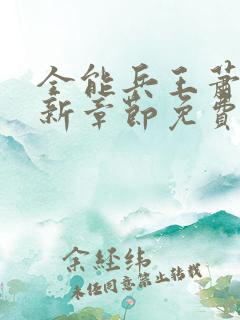 全能兵王蕭
新章節免費
余經緯
未经同意禁止转载